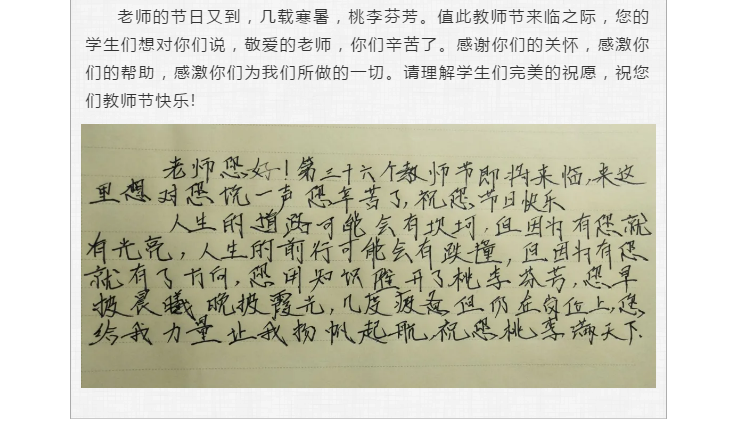 老师的节日又到，几载寒暑，桃李芬芳。值此教师节来临之际，您的
学生们想对你们说，敬爱的老师，你们辛苦了。感谢你们的关怀，感激你
们的帮助，感激你们为我们所做的一切。请理解学生们完美的祝愿，祝您
们教师节快乐!
老师您好！第三十六个教师节即将来临,来这
里想对您说一声您辛苦了,祝您节日快乐
人生的道路可能会有坎坷,但因为有您就
有光亮,人生的前行可能会有跌撞,但因为有您
就有了方向,您用知识胜开了桃李芬芳,您早
披晨曦晚披霞光,几度疲惫但仍在岗位上,您
给我力量让我扬帆起航,祝您桃李满天下.